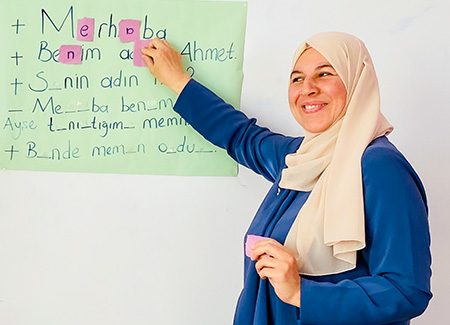 + Merhaba
+ Benim ad Ahmet.
+ S_nin adın ?
- Me_ _ba ben_m
Ayşe t_nı_tığım_ memn
+ B_nde mem_n o_du_.